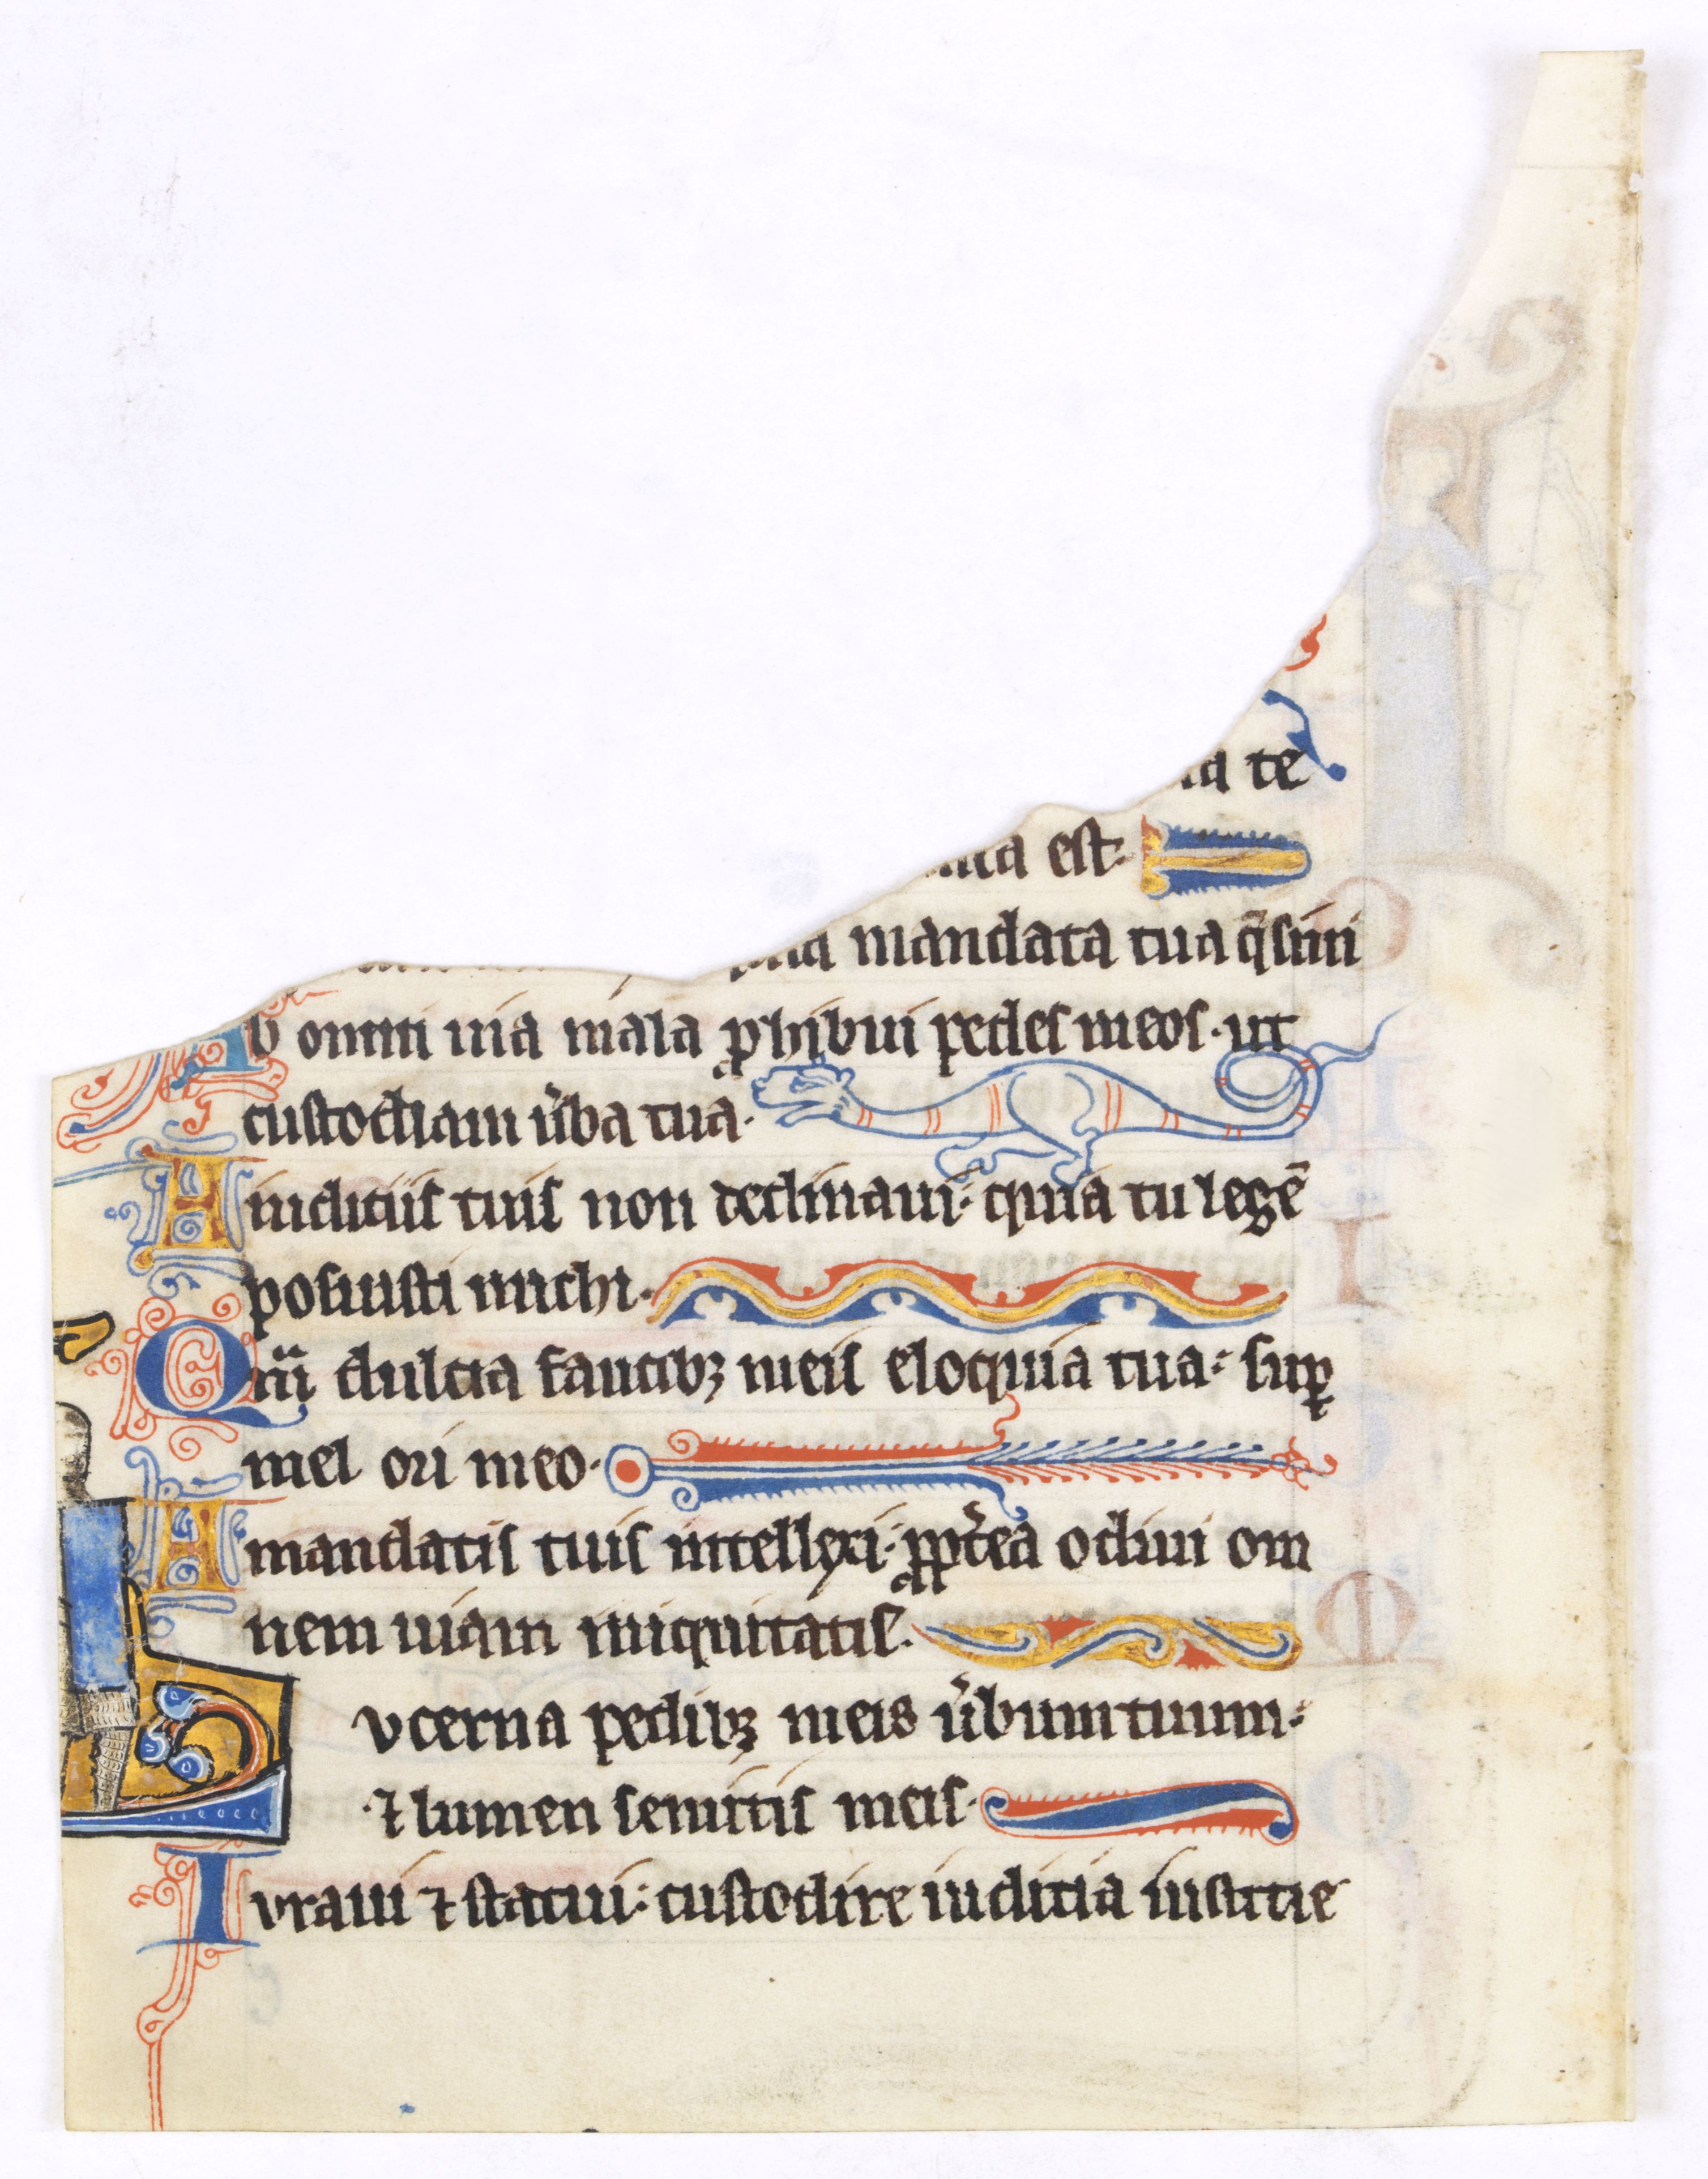 te
est·
mandata tua q̄siui
b omni uia mala ꝓhibui pedes meos· ut
custodiam ūba tua·
A iudiciis tuis non declinaui· quia tu legē
posuisti michi·
Qm̄ dulcia faucibꝫ meis eloquia tua· suꝑ
mel ori meo·
A mandatis tuis intellexi· ꝓpt̄ea odiui om
nem uiam iniquitatis·
L vcerna pedibꝫ meis ūbum tuum·
⁊ lumen semitis meis·
I vraui ⁊ statui· custodire iudicia iusticie